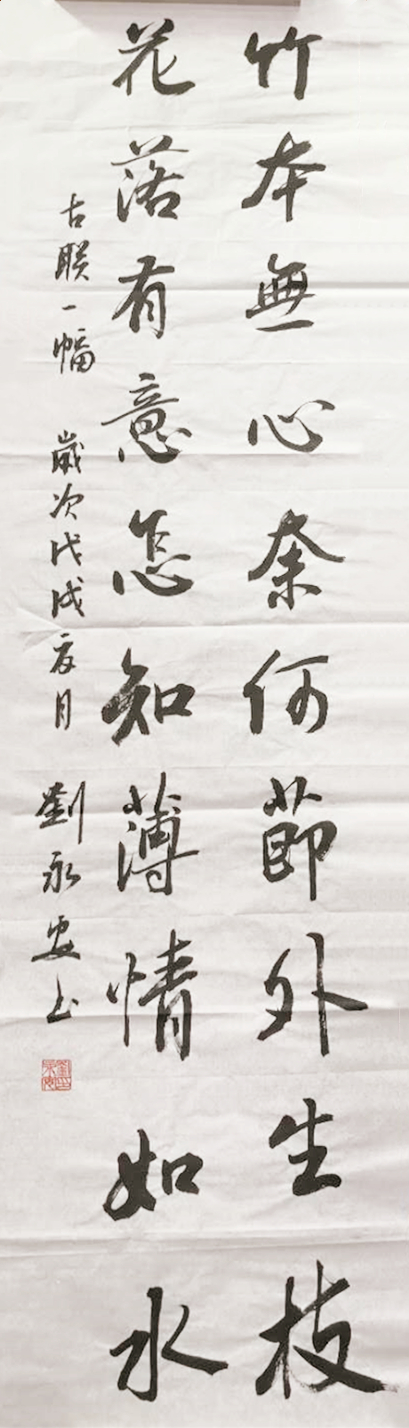 竹本無心奈何節外生枝
花落有意怎知薄情如水
古联一幅 歲次戊戌夏月 劉永安书